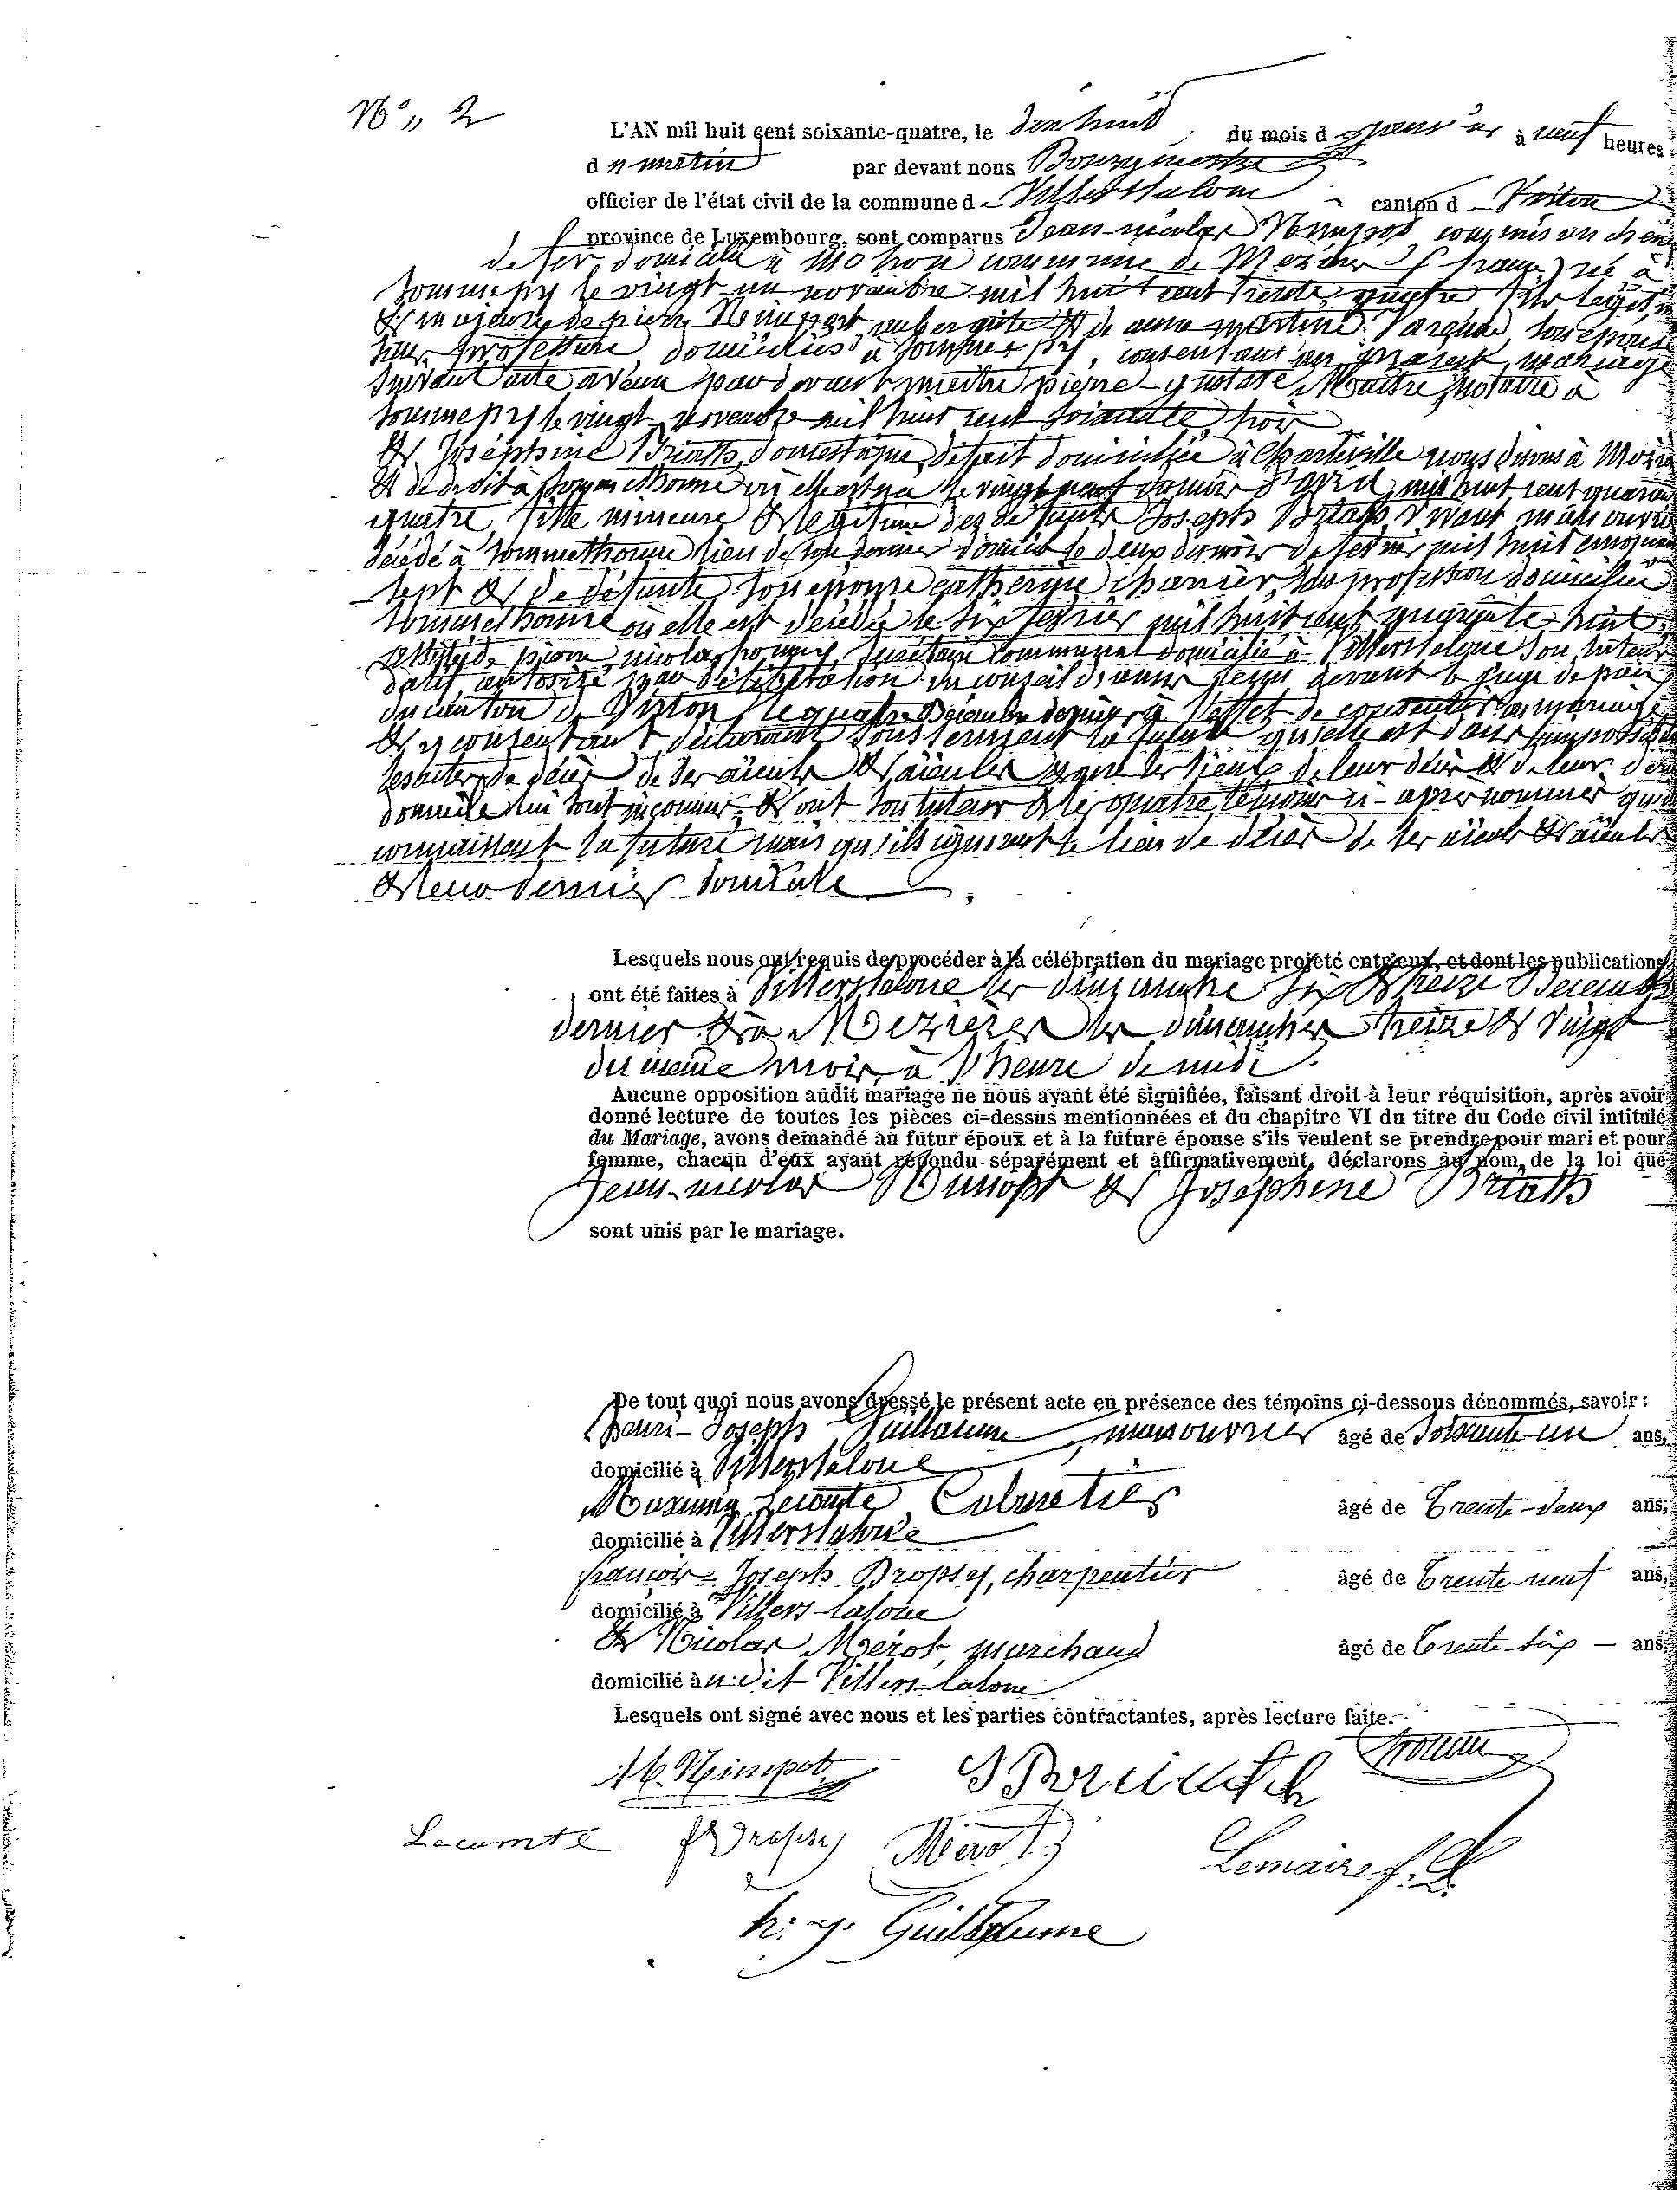 N° 2
L'AN mil huit cent soixante-quatre, le dix huit du mois d janvier à neuf heures
du matin par devant nous Bourgmestre
officier de l'état civil de la commune d Villers la loue canton d Virton
province de Luxembourg, sont comparus Jean-nicolas commis au chemin
de fer, domicilié à Mohon commune de Mézières (france) né à
Sommepy le vingt un novembre mil huit cent trente quatre fils légitime
& majeur de pierre aubergiste & de anne martine son épouse
sans profession domiciliés à Sommepy, consentant au présent mariage
suivant acte avenu par devant maitre pierre-gustave notaire à
Sommepy le vingt novembre mil huit cent soixante trois
& Joséphine domestique de fait domiciliée à Charleville
& de droit à Sommethonne où elle est née le vingt neuf d'avril mil huit cent quarante
quatre, fille mineure & légitime des défunts Joseph vivant manouvrier
décédé à Sommethonne lieu de son dernier domicile le deux février mil huit cinquante
sept & de défunte son épouse catherine sans profession domiciliée
Sommethonne où elle est décédée le six février mil huit cent quarante huit
de pierre nicolas secrétaire communal domicilié à Villers la loue son tuteur
datif autorisé par délibération du conseil de tenu devant le juge de paix
du canton de Virton le quatre Décembre dernier à l'effet de consentir au mariage
& y consentant déclarant sous serment la future qu'elle est dans
de décès de ses aïeuls & aïeules & que les lieux de leur décès & de leur dernier
domicile lui sont inconnus & ont son tuteur & les quatre témoins ci-après nommés
connaissent la future mais qu'ils ignorent le lieu de décès de ses aïeuls & aïeules
& leur dernier domicile
Lesquels nous ont requis de procéder à la célébration du mariage projeté entr'eux, et dont les publications
ont été faites à Villers la loue les dimanche six & treize Décembre
dernier & à Mézières les dimanches treize & vingt
du même mois, à l'heure de midi
Aucune opposition audit mariage ne nous ayant été signifiée, faisant droit à leur réquisition, après avoir
donné lecture de toutes les pièces ci-dessus mentionnées et du chapitre VI du titre du Code civil intitulé
du Mariage, avons demandé au futur époux et à la future épouse s'ils veulent se prendre pour mari et pour
femme, chacun d'eux ayant répondu séparément et affirmativement, déclarons au nom de la loi que
Jean-nicolas & Joséphine
sont unis par le mariage.
De tout quoi nous avons dressé le présent acte en présence des témoins ci-dessous dénommés, savoir :
henri-Joseph Guillaume, manouvrier âgé de soixante-un ans,
domicilié à Villers la loue
Maximin Lecomte Cabaretier âgé de Trente-deux ans,
domicilié à Villers la loue
françois-Joseph Dropsy, charpentier âgé de Trente-neuf ans,
domicilié à Villers-la loue
& Nicolas Mérot, marchand âgé de Trente-six - ans,
domicilié au dit Villers-la loue
Lesquels ont signé avec nous et les parties contractantes, après lecture faite.
Lecomte Dropsy Mérot Lemaire f.
h. j. Guillaume